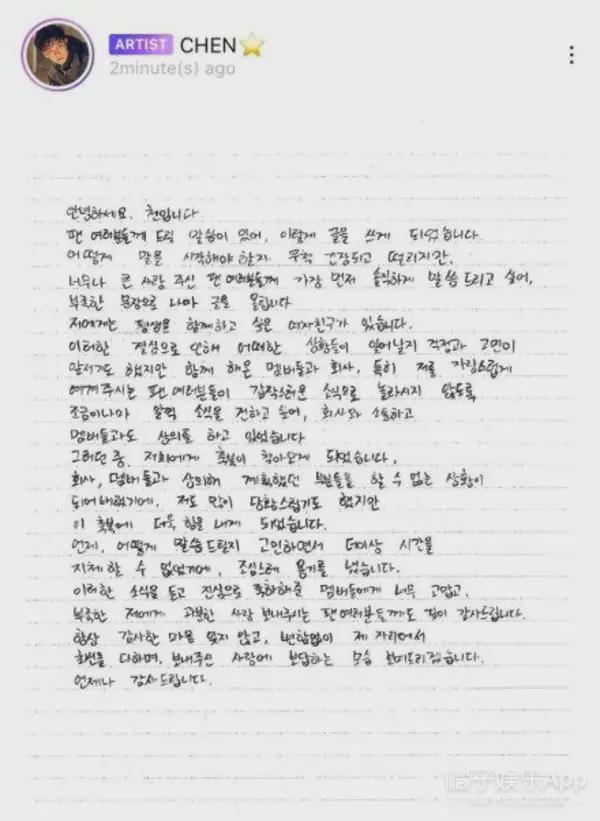 ARTIST CHEN⭐
2minute(s) ago
안녕하세요. 첸입니다
팬 여러분들께 드릴 말씀이 있어, 이렇게 글을 쓰게 되었습니다.
어떻게 말을 시작해야 할지 무척 긴장되고 떨리지만,
너무나 큰 사랑 주신 팬 여러분들께 가장 먼저 솔직하게 말씀 드리고 싶어,
부족한 문장으로 나마 글을 올립니다
저에게는 평생을 함께하고 싶은 여자친구가 있습니다.
이러한 결심으로 인해 어떠한 상황들이 일어날지 걱정과 고민이
앞서기도 했지만 함께 해온 멤버들과 회사, 특히 저를 자랑스럽게
여겨주시는 팬 여러분들이 갑작스러운 소식으로 놀라시지 않도록
조금이나마 일찍 소식을 전하고 싶어, 회사와 소통하고
멤버들과도 상의를 하고 있었습니다
그러던 중, 저희에게 축복이 찾아오게 되었습니다.
회사, 멤버들과 상의해 계획했던 부분들을 할 수 없는 상황이
되어버렸기에, 저도 많이 당황스럽기도 했지만
이 축복에 더욱 힘을 내게 되었습니다.
언제, 어떻게 말씀드릴지 고민하면서 더이상 시간을
지체할 수 없었기에, 조심스레 용기를 냈습니다.
이러한 소식을 듣고 진심으로 축하해준 멤버들에게 너무 고맙고,
부족한 저에게 과분한 사랑 보내주시는 팬 여러분들께도 깊이 감사드립니다.
항상 감사한 마음 잊지 않고, 변함없이 제 자리에서
최선을 다하며, 보내주신 사랑에 보답하는 모습 보여드리겠습니다.
언제나 감사드립니다.
娱乐App